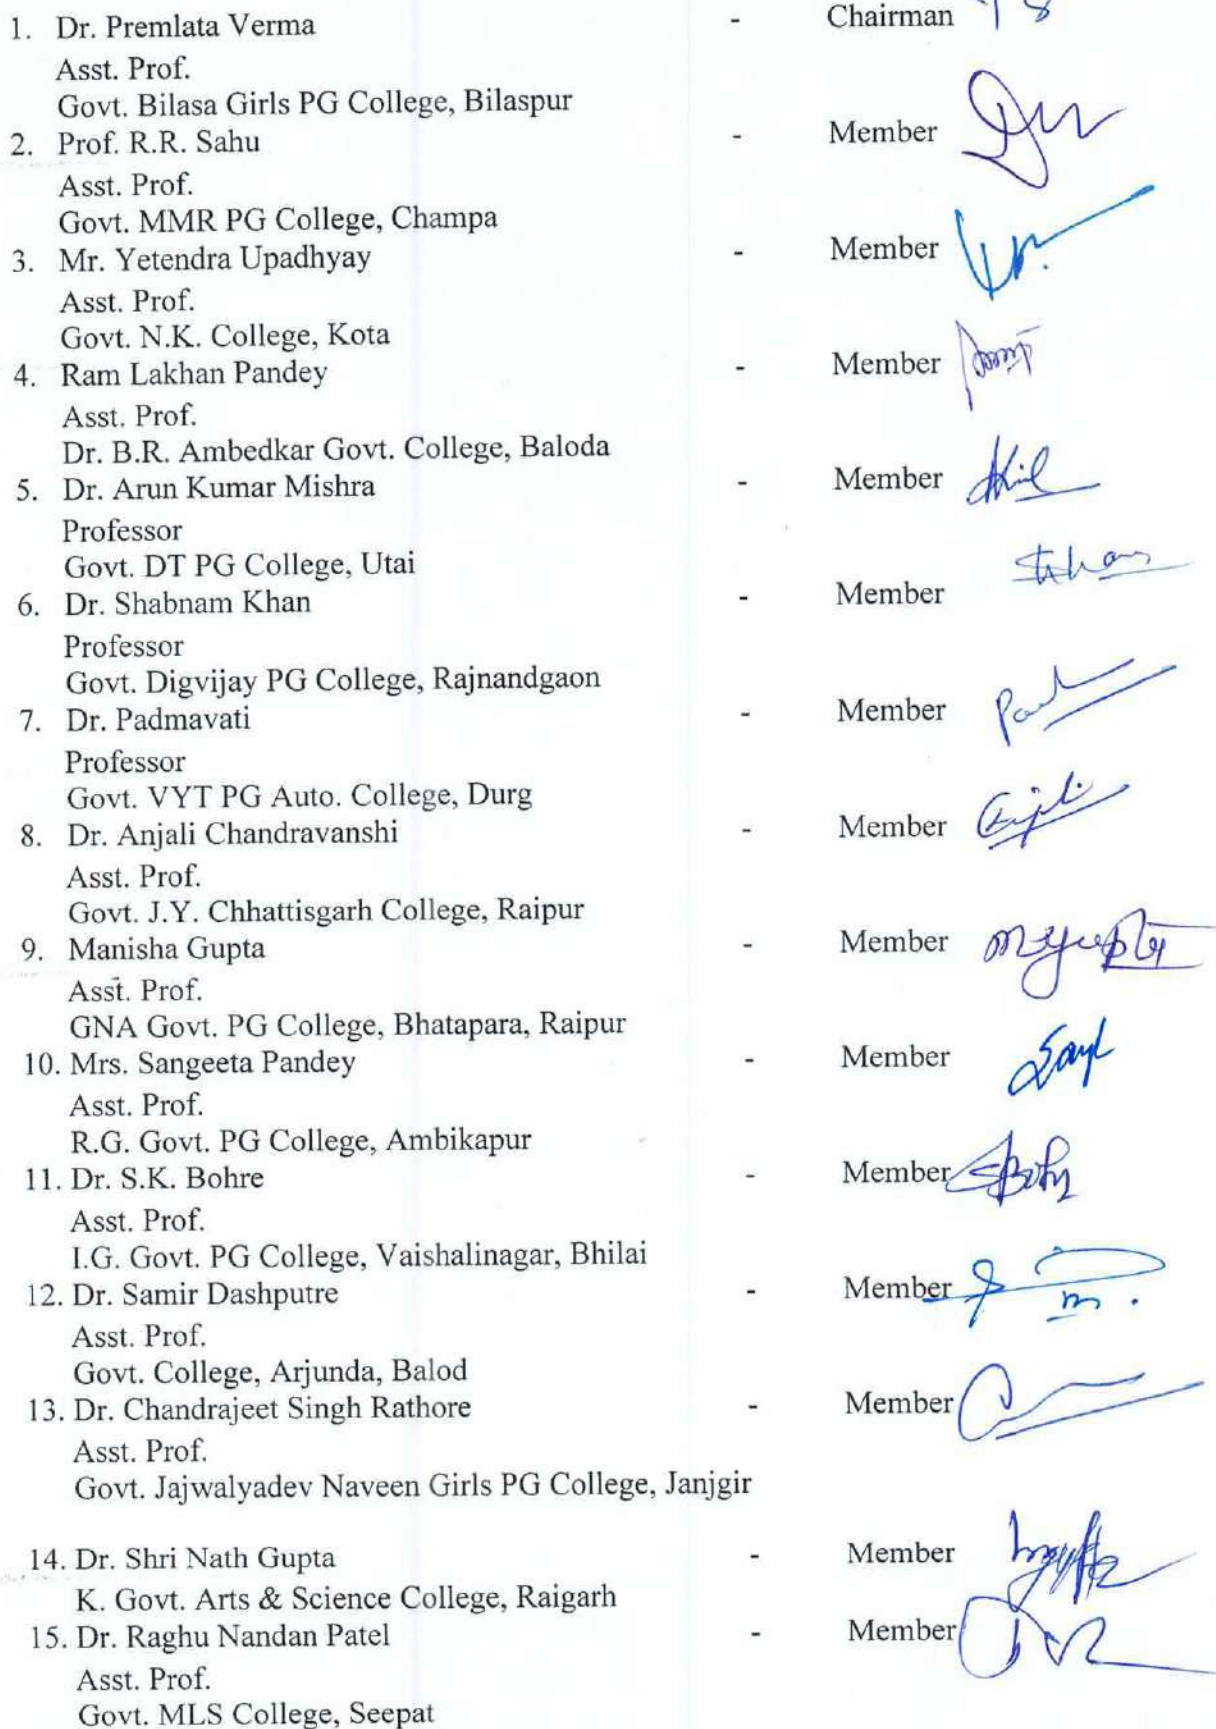 1. Dr. Premlata Verma - Chairman
Asst. Prof.
Govt. Bilasa Girls PG College, Bilaspur
2. Prof. R.R. Sahu - Member
Asst. Prof.
Govt. MMR PG College, Champa
3. Mr. Yetendra Upadhyay - Member
Asst. Prof.
Govt. N.K. College, Kota
4. Ram Lakhan Pandey - Member
Asst. Prof.
Dr. B.R. Ambedkar Govt. College, Baloda
5. Dr. Arun Kumar Mishra - Member
Professor
Govt. DT PG College, Utai
6. Dr. Shabnam Khan - Member
Professor
Govt. Digvijay PG College, Rajnandgaon
7. Dr. Padmavati - Member
Professor
Govt. VYT PG Auto. College, Durg
8. Dr. Anjali Chandravanshi - Member
Asst. Prof.
Govt. J.Y. Chhattisgarh College, Raipur
9. Manisha Gupta - Member
Asst. Prof.
GNA Govt. PG College, Bhatapara, Raipur
10. Mrs. Sangeeta Pandey - Member
Asst. Prof.
R.G. Govt. PG College, Ambikapur
11. Dr. S.K. Bohre - Member
Asst. Prof.
I.G. Govt. PG College, Vaishalinagar, Bhilai
12. Dr. Samir Dashputre - Member
Asst. Prof.
Govt. College, Arjunda, Balod
13. Dr. Chandrajeet Singh Rathore - Member
Asst. Prof.
Govt. Jajwalyadev Naveen Girls PG College, Janjgir
14. Dr. Shri Nath Gupta - Member
K. Govt. Arts & Science College, Raigarh
15. Dr. Raghu Nandan Patel - Member
Asst. Prof.
Govt. MLS College, Seepat